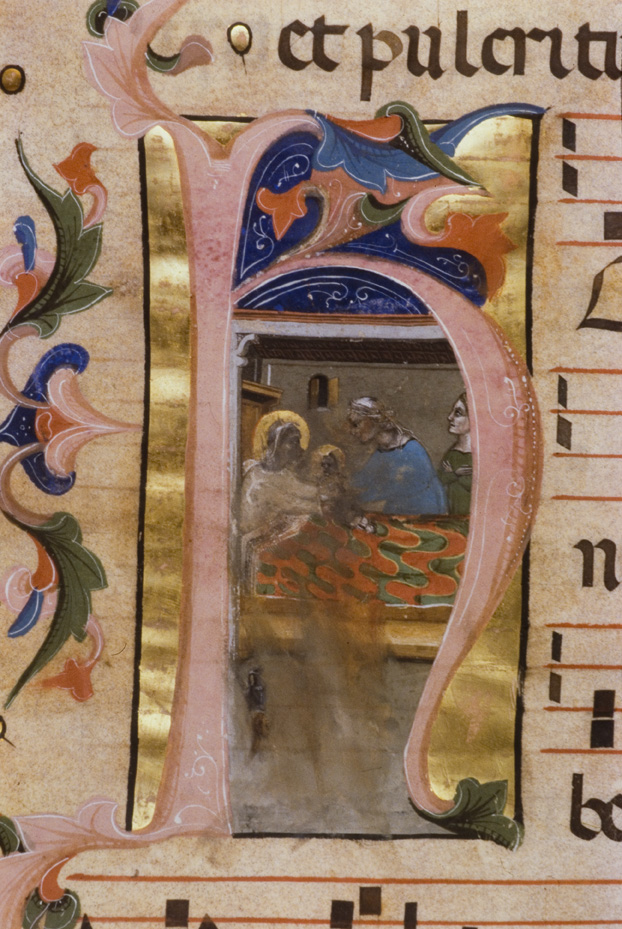 et pulcritu
H
n
bo